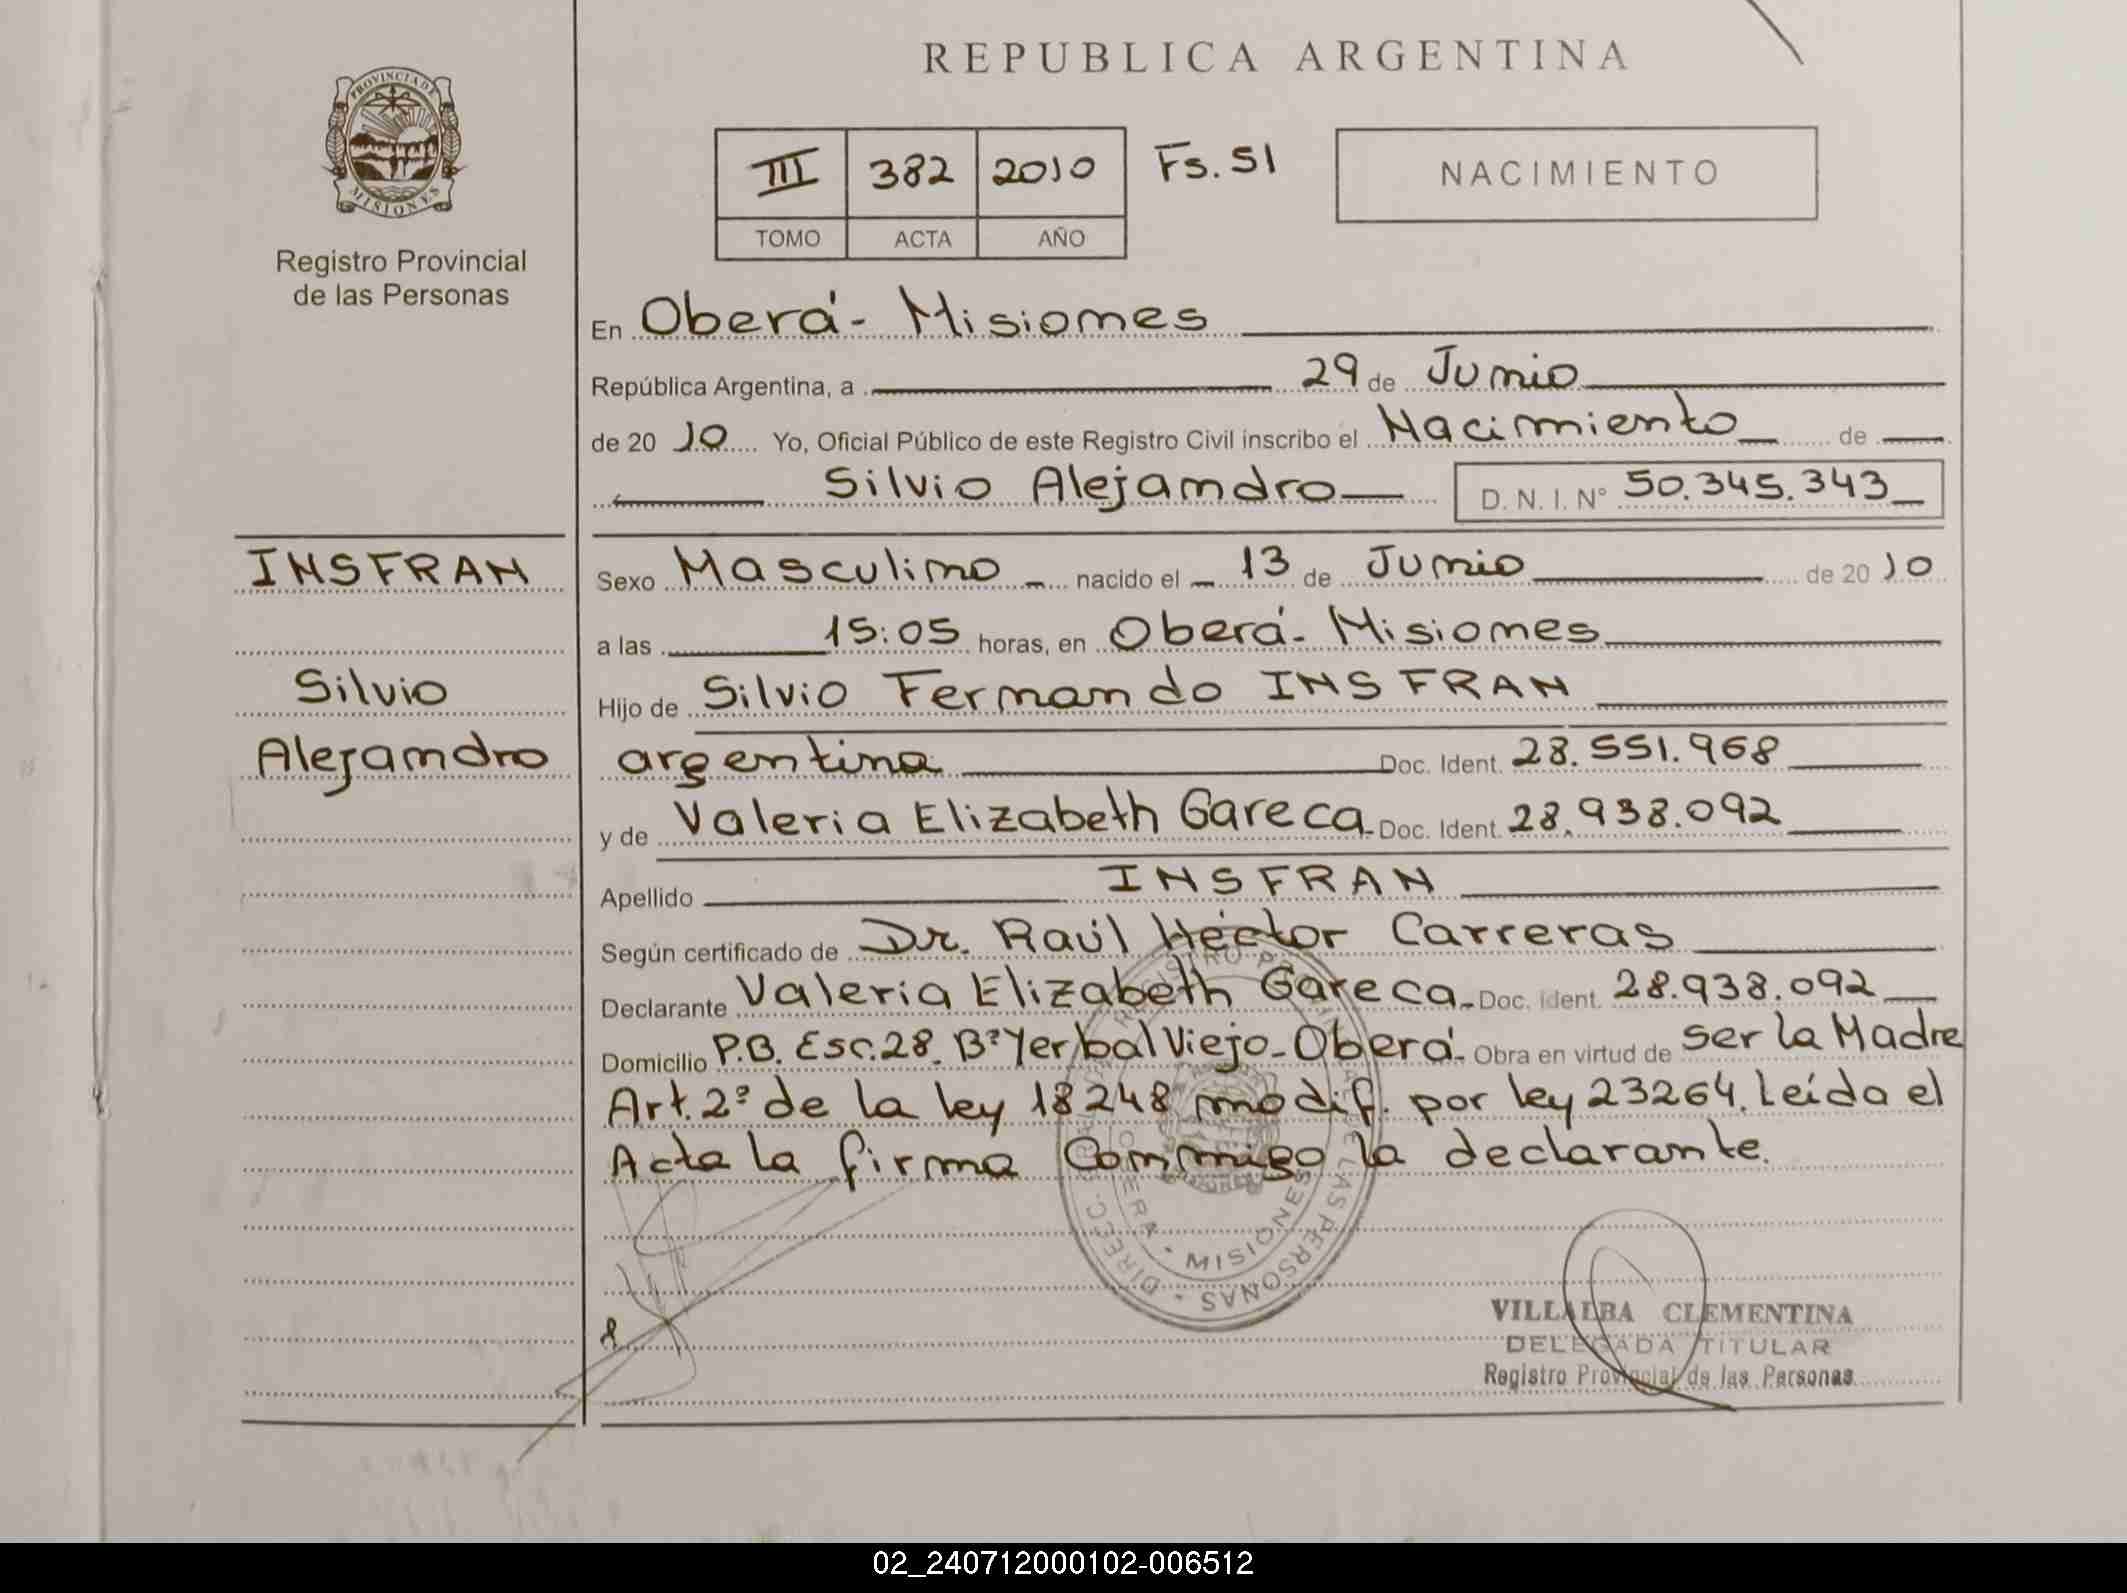 REPUBLICA ARGENTINA
PROVINCIA DE MISIONES
Registro Provincial
de las Personas
III 382 2010 Fs. 51
TOMO ACTA AÑO
NACIMIENTO
En Oberá - Misiones
República Argentina, a 29 de Junio
de 2010 Yo, Oficial Público de este Registro Civil inscribo el Nacimiento de
Silvio Alejandro D. N. I. N° 50.345.343
INSFRAN
Silvio
Alejandro
Sexo Masculino nacido el 13 de Junio de 2010
a las 15:05 horas, en Oberá - Misiones
Hijo de Silvio Fernando INSFRAN
argentina Doc. Ident. 28.551.968
y de Valeria Elizabeth Gareca Doc. Ident. 28.938.092
Apellido INSFRAN
Según certificado de Dr. Raúl Héctor Carreras
Declarante Valeria Elizabeth Gareca Doc. Ident. 28.938.092
Domicilio P.B. Esc. 28 B° Yerbal Viejo - Oberá Obra en virtud de ser la Madre
Art. 2° de la ley 18248 modif. por ley 23264. Leída el
Acta la firma Conmigo la declarante.
MISIONES
DIREC. LAS PERSONAS
VILLALBA CLEMENTINA
DELEGADA TITULAR
Registro Provincial de las Personas
02_240712000102-006512